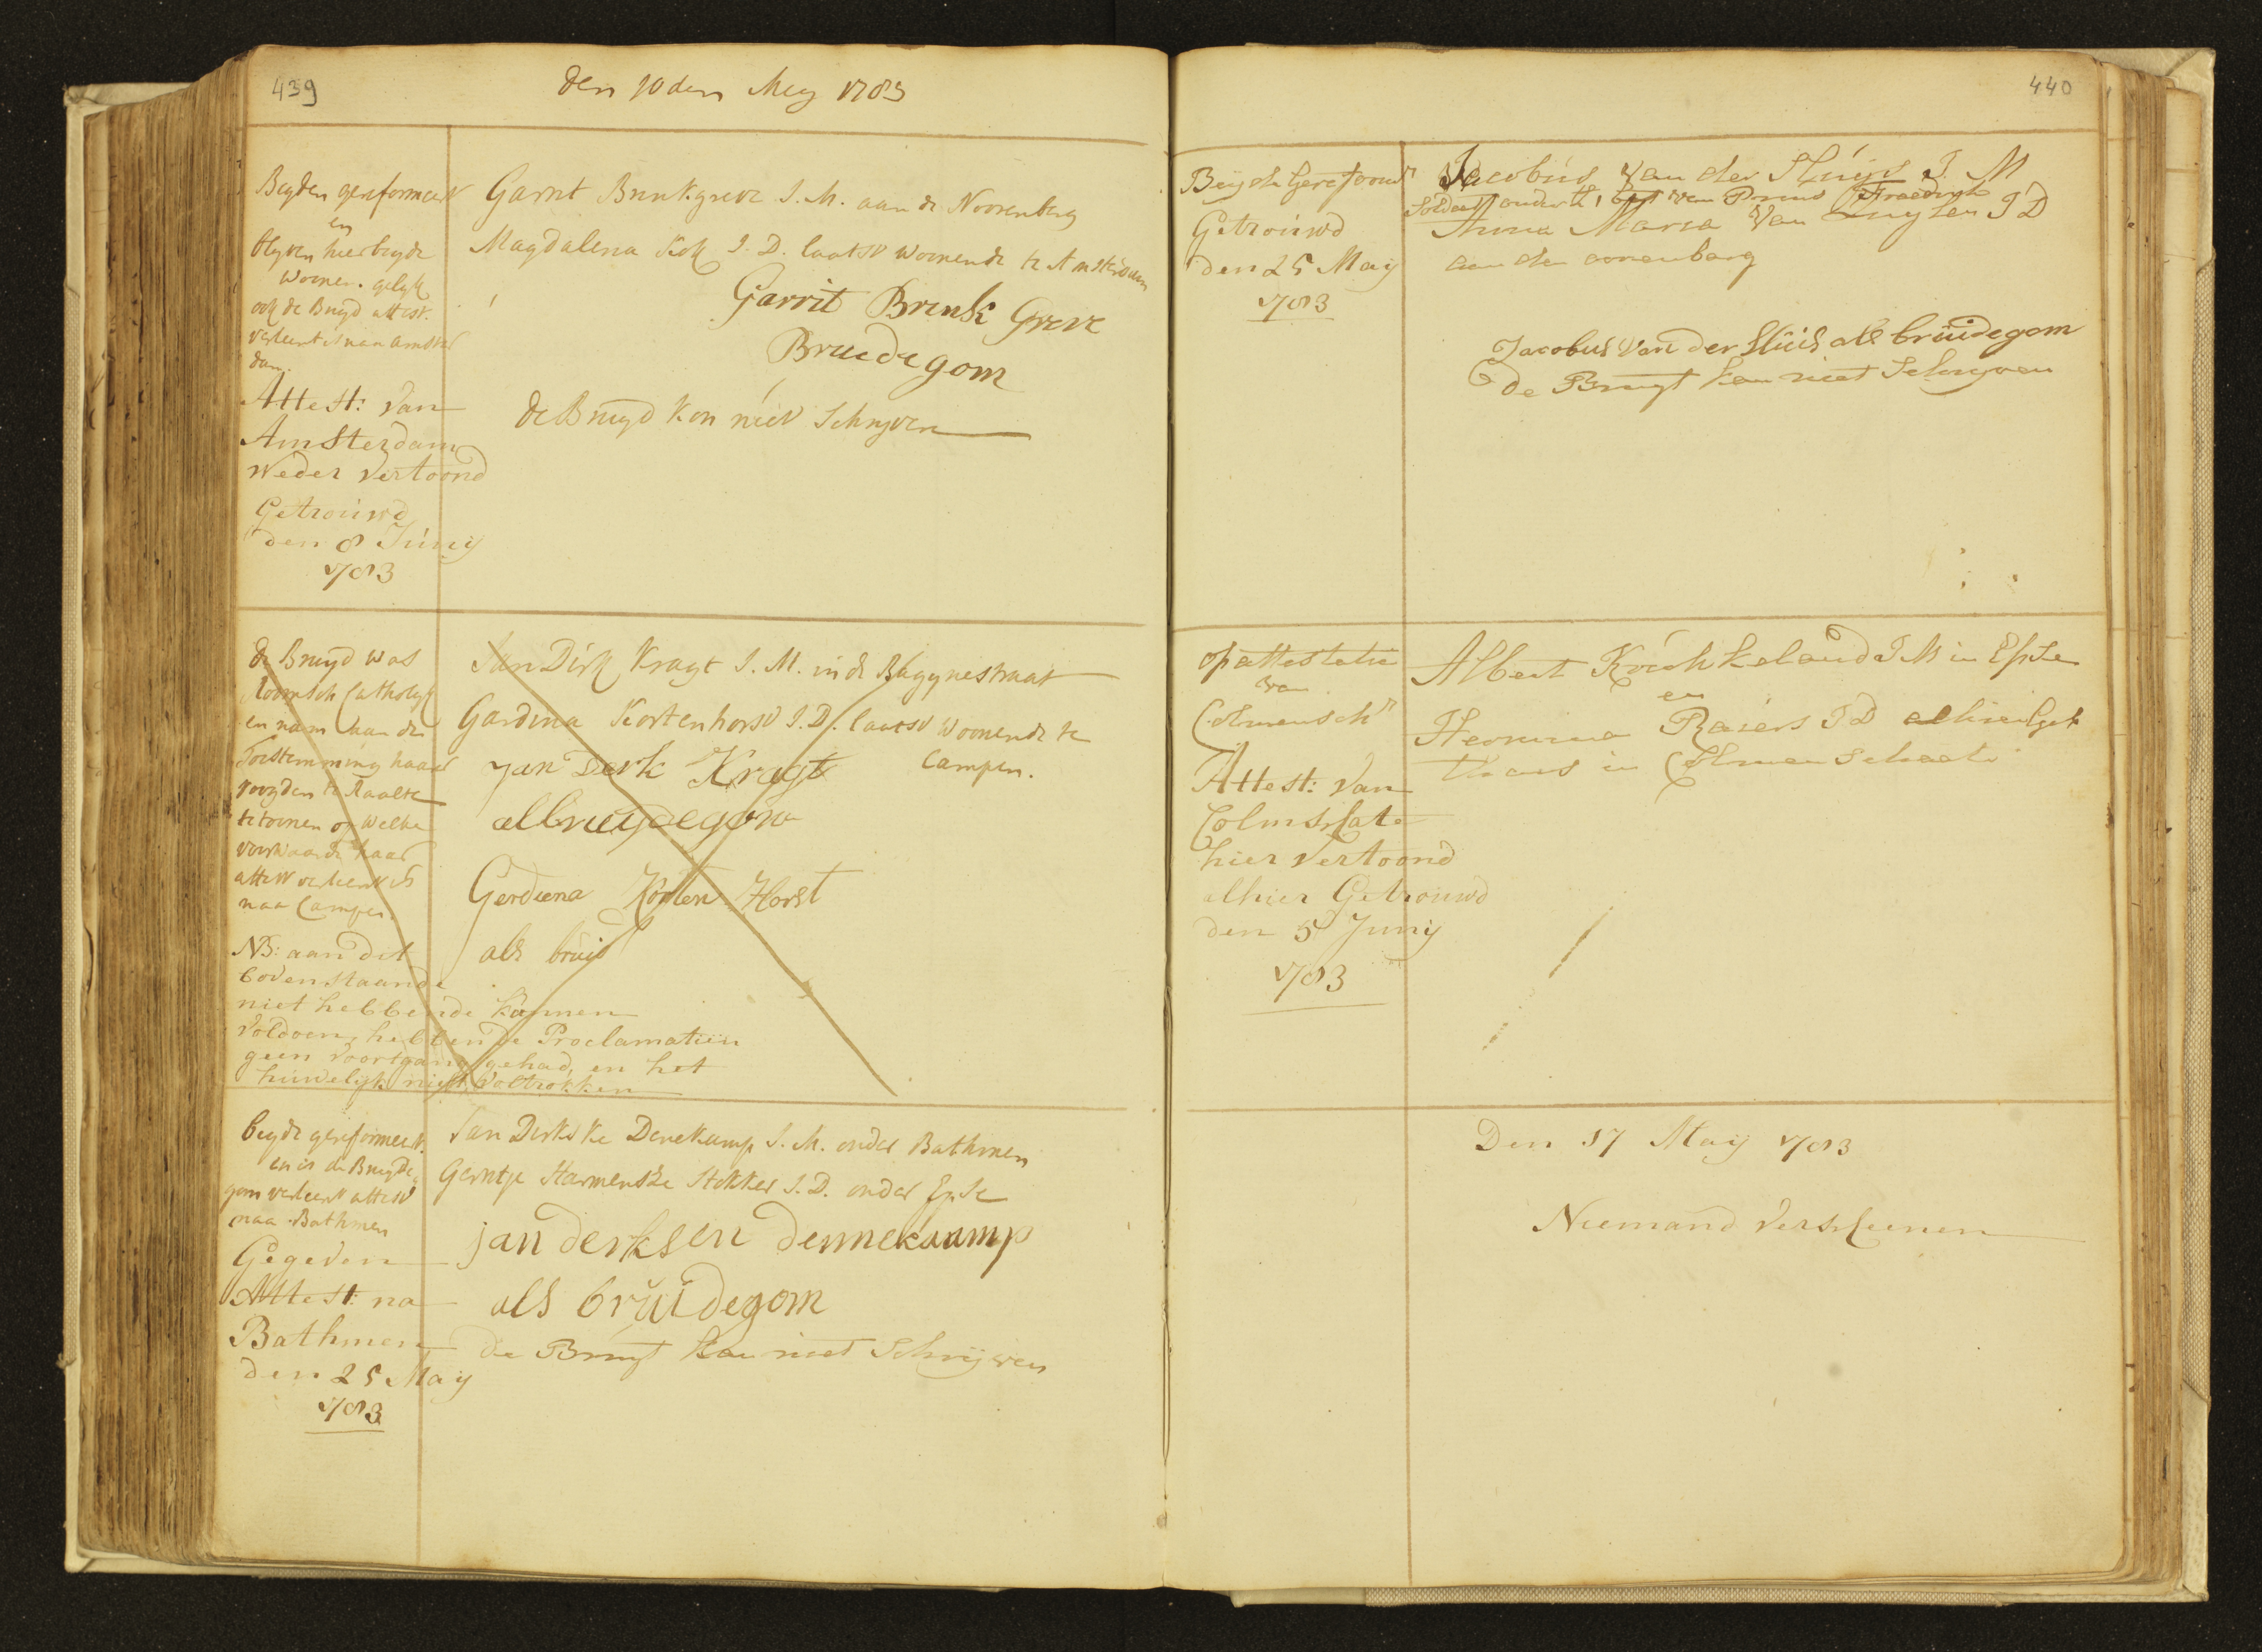 439
den 10 den Mey 1783
Beyden gereformeert
en
blyven hier beyde
woonen. gelyk
ook de Bruyd attest.
verleent is van Amster
dam.
Attest: van
Amsterdam
weder vertoond
Getrouwd
den 8 Junij
1783
Garrit Brinkgreve J. M. aan de Noorenberg
Magdalena Kok J. D. laatst woonende te Amsterdam
Garrit Brink Greve
Bruedegom
de Bruyd kon niet Schryven
de Bruyd was
Roomsch Catholyk
en nam aan de
Toestemming haarer
voogden te Raalte
te toonen op welke
voorwaarde haar
attest verleent is
naa Campen.
NB: aan dit
bovenstaande
niet hebbende kunnen
voldoen, hebben de Proclamatien
geen voortgang gehad, en het
huwelijk niet voltrokken
Jan Dirk Kragt J. M. in de Bagynestraat
Gardina Kortenhorst J. D. laatst woonende te
Campen.
Jan Derk Kragt
als bruydegom
Gerdiena Korten Horst
als bruid
beyde gereformeert.
en is de Bruyde
gom verleent attest
naa Bathmen
Gegeven
Attest: na
Bathmen
den 25 Maij
1783
Jan Derkske Denekamp J. M. onder Bathmen
Gerntje Harmenske Stokker J. D. onder Epse
jan derksen dennekaamp
als bruidegom
de Bruyt kan niet Schrijven
440
Beijde Gereformt
Getrouwd
den 25 Maij
1783
Jacobus van der Sluijs J. M
Soldaat onder het 1 bat van Prins Fraedryk
Anna Maria van Luyten J D
aan den oorenbarg
Jacobus van der Sluis als bruidegom
de Bruyt kan niet Schryven
op attestatie
van
Colmensch
Attest: van
Colmschate
hier vertoond
alhier Getrouwd
den 5 Junij
1783
Albert Kouhkeland J M in Epse
en
Hermina Raiers J D
thans in Colmenschaate
Den 17 Maij 1783
Niemand verscheenen